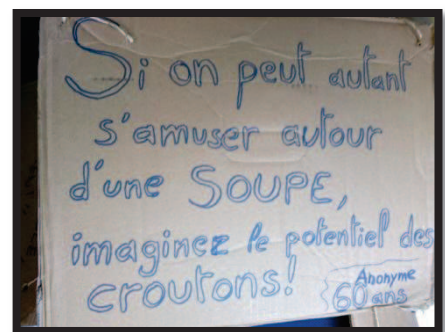 Si on peut autant
s'amuser autour
d'une SOUPE,
imaginez le potentiel des
croutons!
Anonyme
60 ans